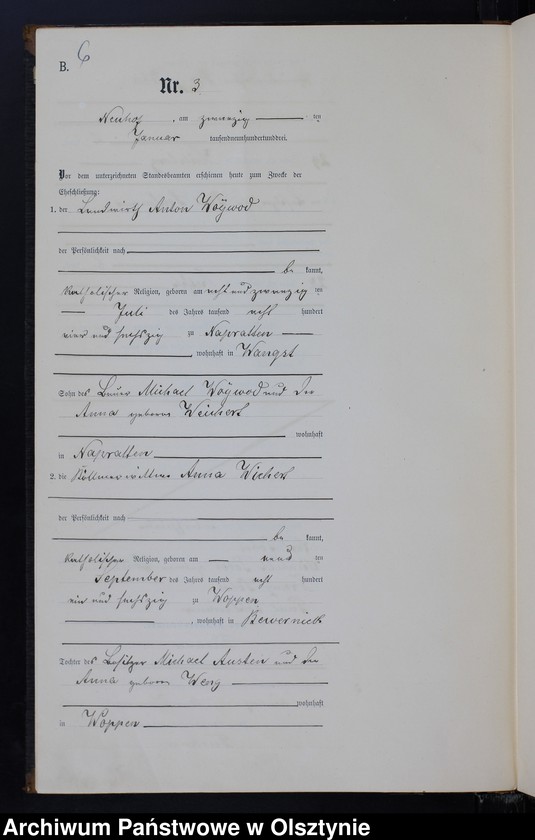 B. 6
Nr. 3
Neuhof, am zwanzigsten
Januar tausendneunhundertunddrei.
Vor dem unterzeichneten Standesbeamten erschienen heute zum Zwecke der
Eheschließung:
1. der Landwirth Anton Woÿwod
der Persönlichkeit nach
be kannt,
katholischer Religion, geboren am acht und zwanzig ten
Juli des Jahres tausend acht hundert
vier und sechszig zu Napratten
, wohnhaft in Wangst
Sohn des Bauer Michael Woÿwod und der
Anna geborne Weichert
wohnhaft
in Napratten
2. die Köllmerwittwe Anna Wichert
der Persönlichkeit nach
be kannt,
katholischer Religion, geboren am ten
September des Jahres tausend acht hundert
ein und sechszig zu Woppen
, wohnhaft in Bewernick
Tochter des Besitzer Michael Austen und der
Anna geborne Weng
wohnhaft
in Woppen
Archiwum Państwowe w Olsztynie